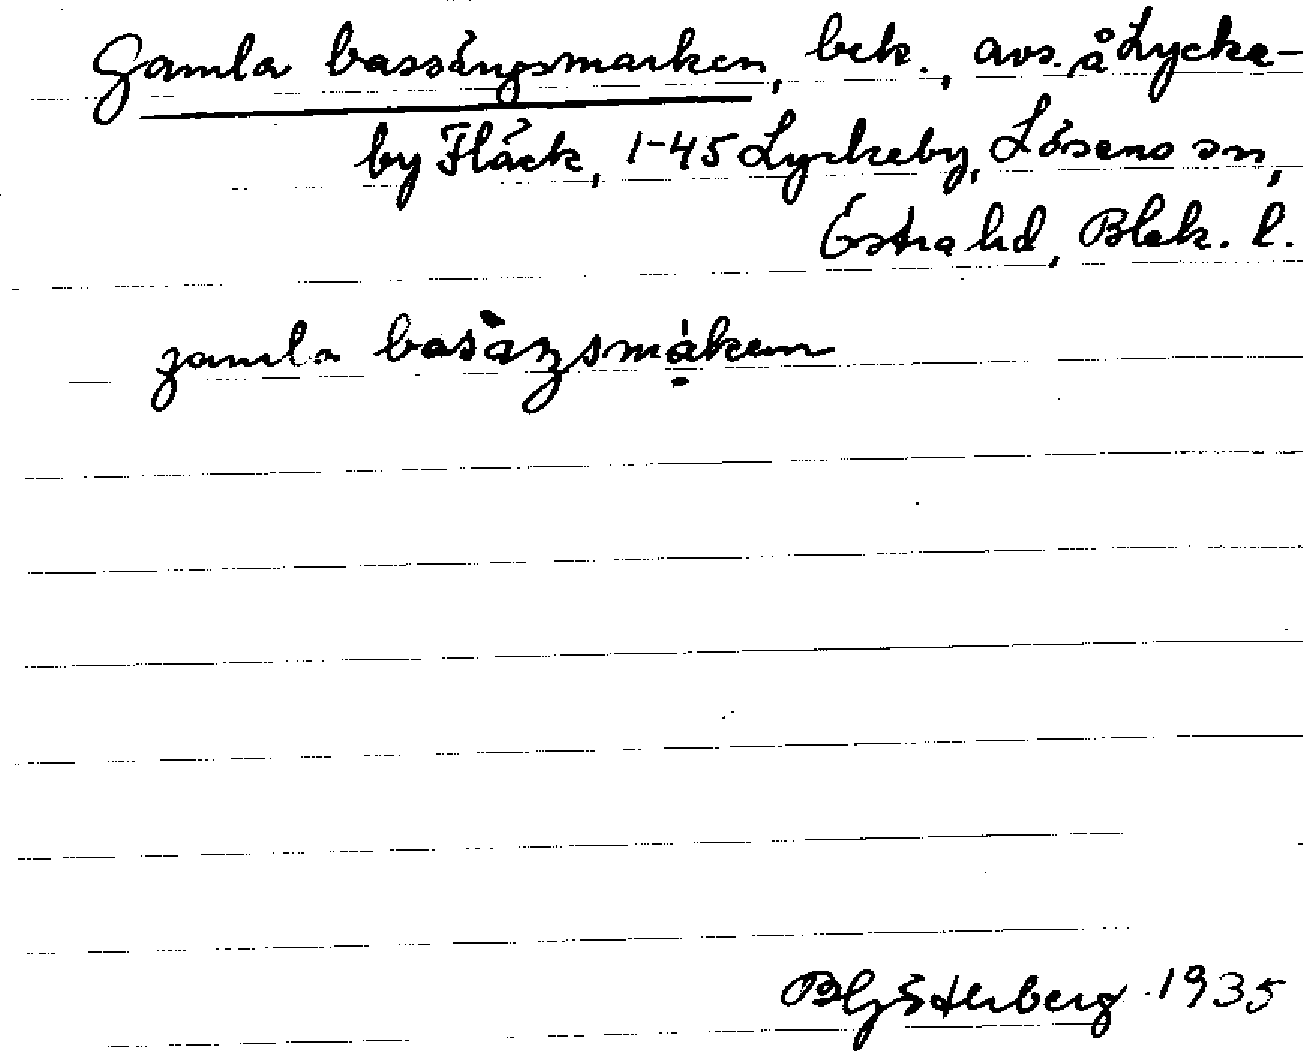 Gamla bassängsmarken, bek., avs. å Lycke-
by Fläck, 1-45 Lyckeby, Lösens sn,
Östra hd, Blek. l.
gamla
BGÖsterberg 1935